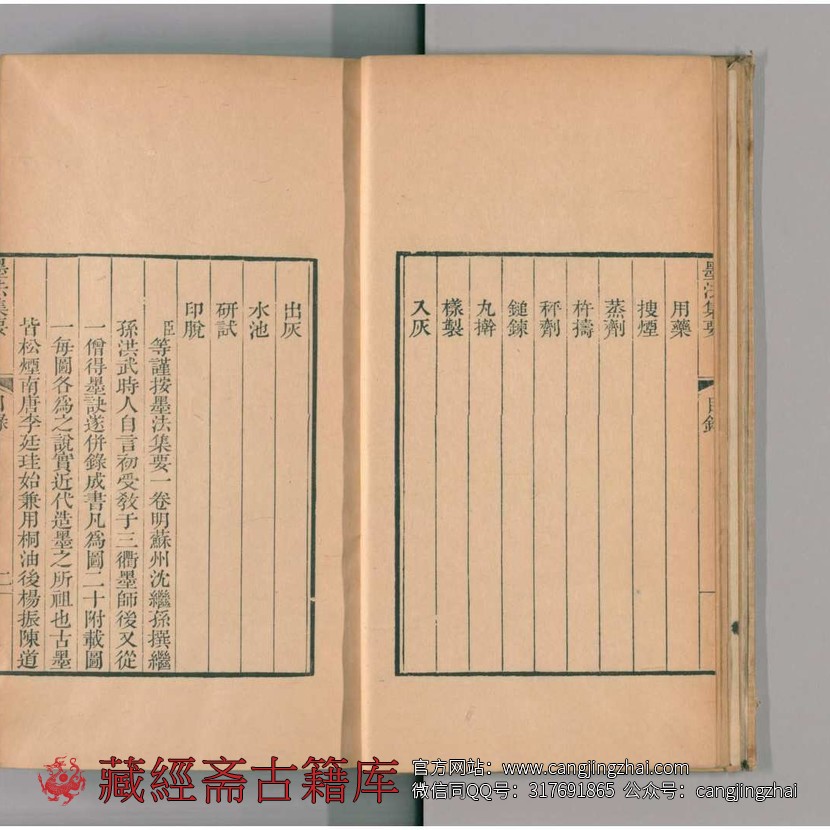 墨法集要
目錄
用藥
搜煙
蒸劑
杵擣
秤劑
鎚鍊
丸擀
樣製
入灰
出灰
水池
研試
印脫
臣等謹按墨法集要一卷明蘇州沈繼孫撰繼
孫洪武時人自言初受敎于三衢墨師後又從
一僧得墨訣遂併錄成書凡爲圖二十附載圖
一每圖各爲之說實近代造墨之所祖也古墨
皆松煙南唐李廷珪始兼用桐油後楊振陳道
墨法集要
目錄
二
藏經斋古籍库
官方网站：www.cangjingzhai.com
微信同QQ号：317691865 公众号：cangjingzhai